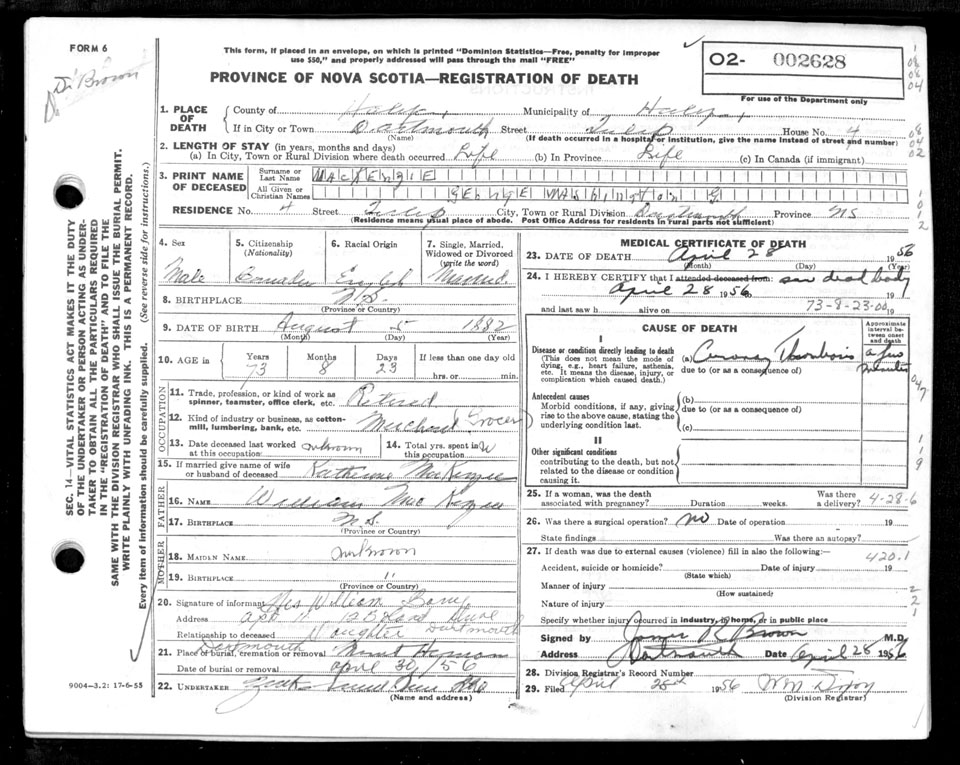 FORM 6
Dr Brown
This form, if placed in an envelope, on which is printed "Dominion Statistics—Free, penalty for improper
use $50," and properly addressed will pass through the mail "FREE"
PROVINCE OF NOVA SCOTIA—REGISTRATION OF DEATH
02- 002628
For use of the Department only
1. PLACE OF DEATH County of Halifax Municipality of Halifax
If in City or Town Dartmouth Street Tulip House No. 4
(Name) (If death occurred in a hospital or institution, give the name instead of street and number)
2. LENGTH OF STAY (in years, months and days)
(a) In City, Town or Rural Division where death occurred Life (b) In Province Life (c) In Canada (if immigrant)
3. PRINT NAME OF DECEASED Surname or Last Name MACKENZIE
All Given or Christian Names GEORGE WASHINGTON G
RESIDENCE No. 4 Street Tulip City, Town or Rural Division Dartmouth Province NS
(Residence means usual place of abode. Post Office Address for residents in rural parts not sufficient)
4. Sex
Male
5. Citizenship (Nationality)
Canadian
6. Racial Origin
English
7. Single, Married, Widowed or Divorced (write the word)
Married
8. BIRTHPLACE N.S.
(Province or Country)
9. DATE OF BIRTH August 5 1882
(Month) (Day) (Year)
10. AGE in Years 73 Months 8 Days 23 If less than one day old
hrs. or min.
OCCUPATION
11. Trade, profession, or kind of work as spinner, teamster, office clerk, etc. Retired
12. Kind of industry or business, as cotton-mill, lumbering, bank, etc. Merchant (Grocer)
13. Date deceased last worked at this occupation: unknown
14. Total yrs. spent in this occupation
15. If married give name of wife or husband of deceased Katherine MacKenzie
FATHER
16. NAME William MacKenzie
17. BIRTHPLACE N.S.
(Province or Country)
MOTHER
18. MAIDEN NAME unknown
19. BIRTHPLACE "
(Province or Country)
20. Signature of informant Mrs William
Address Dartmouth
Relationship to deceased Daughter
21. Place of burial, cremation or removal Dartmouth Mount Hermon
Date of burial or removal april 30/56
22. UNDERTAKER
(Name and address)
9004—3.2: 17-6-55
MEDICAL CERTIFICATE OF DEATH
23. DATE OF DEATH April 28 1956
(Month) (Day) (Year)
24. I HEREBY CERTIFY that I attended deceased from: saw dead body
April 28 1956
73-8-23-00
and last saw h alive on 19
CAUSE OF DEATH
Approximate interval between onset and death
I
Disease or condition directly leading to death
(This does not mean the mode of dying, e.g., heart failure, asthenia, etc. It means the disease, injury, or complication which caused death.)
(a) Coronary Thrombosis a few minutes
due to (or as a consequence of)
Antecedent causes
Morbid conditions, if any, giving rise to the above cause, stating the underlying condition last.
(b)
due to (or as a consequence of)
(c)
II
Other significant conditions
contributing to the death, but not related to the disease or condition causing it.
25. If a woman, was the death associated with pregnancy? Duration weeks. Was there a delivery?
4-28-6
26. Was there a surgical operation? no Date of operation 19
State findings Was there an autopsy?
27. If death was due to external causes (violence) fill in also the following:
420.1
Accident, suicide or homicide? Date of injury 19
(State which)
Manner of injury
(How sustained)
Nature of injury
Specify whether injury occurred in industry, in home, or in public place
Signed by James R Brown M.D.
Address Dartmouth Date April 28 1956
28. Division Registrar's Record Number
29. Filed April 28th 1956
(Division Registrar)
SEC. 14—VITAL STATISTICS ACT MAKES IT THE DUTY
OF THE UNDERTAKER OR PERSON ACTING AS UNDER-
TAKER TO OBTAIN ALL THE PARTICULARS REQUIRED
IN THE "REGISTRATION OF DEATH" AND TO FILE THE
SAME WITH THE DIVISION REGISTRAR WHO SHALL ISSUE THE BURIAL PERMIT.
WRITE PLAINLY WITH UNFADING INK. THIS IS A PERMANENT RECORD.
Every item of information should be carefully supplied. (See reverse side for instructions.)